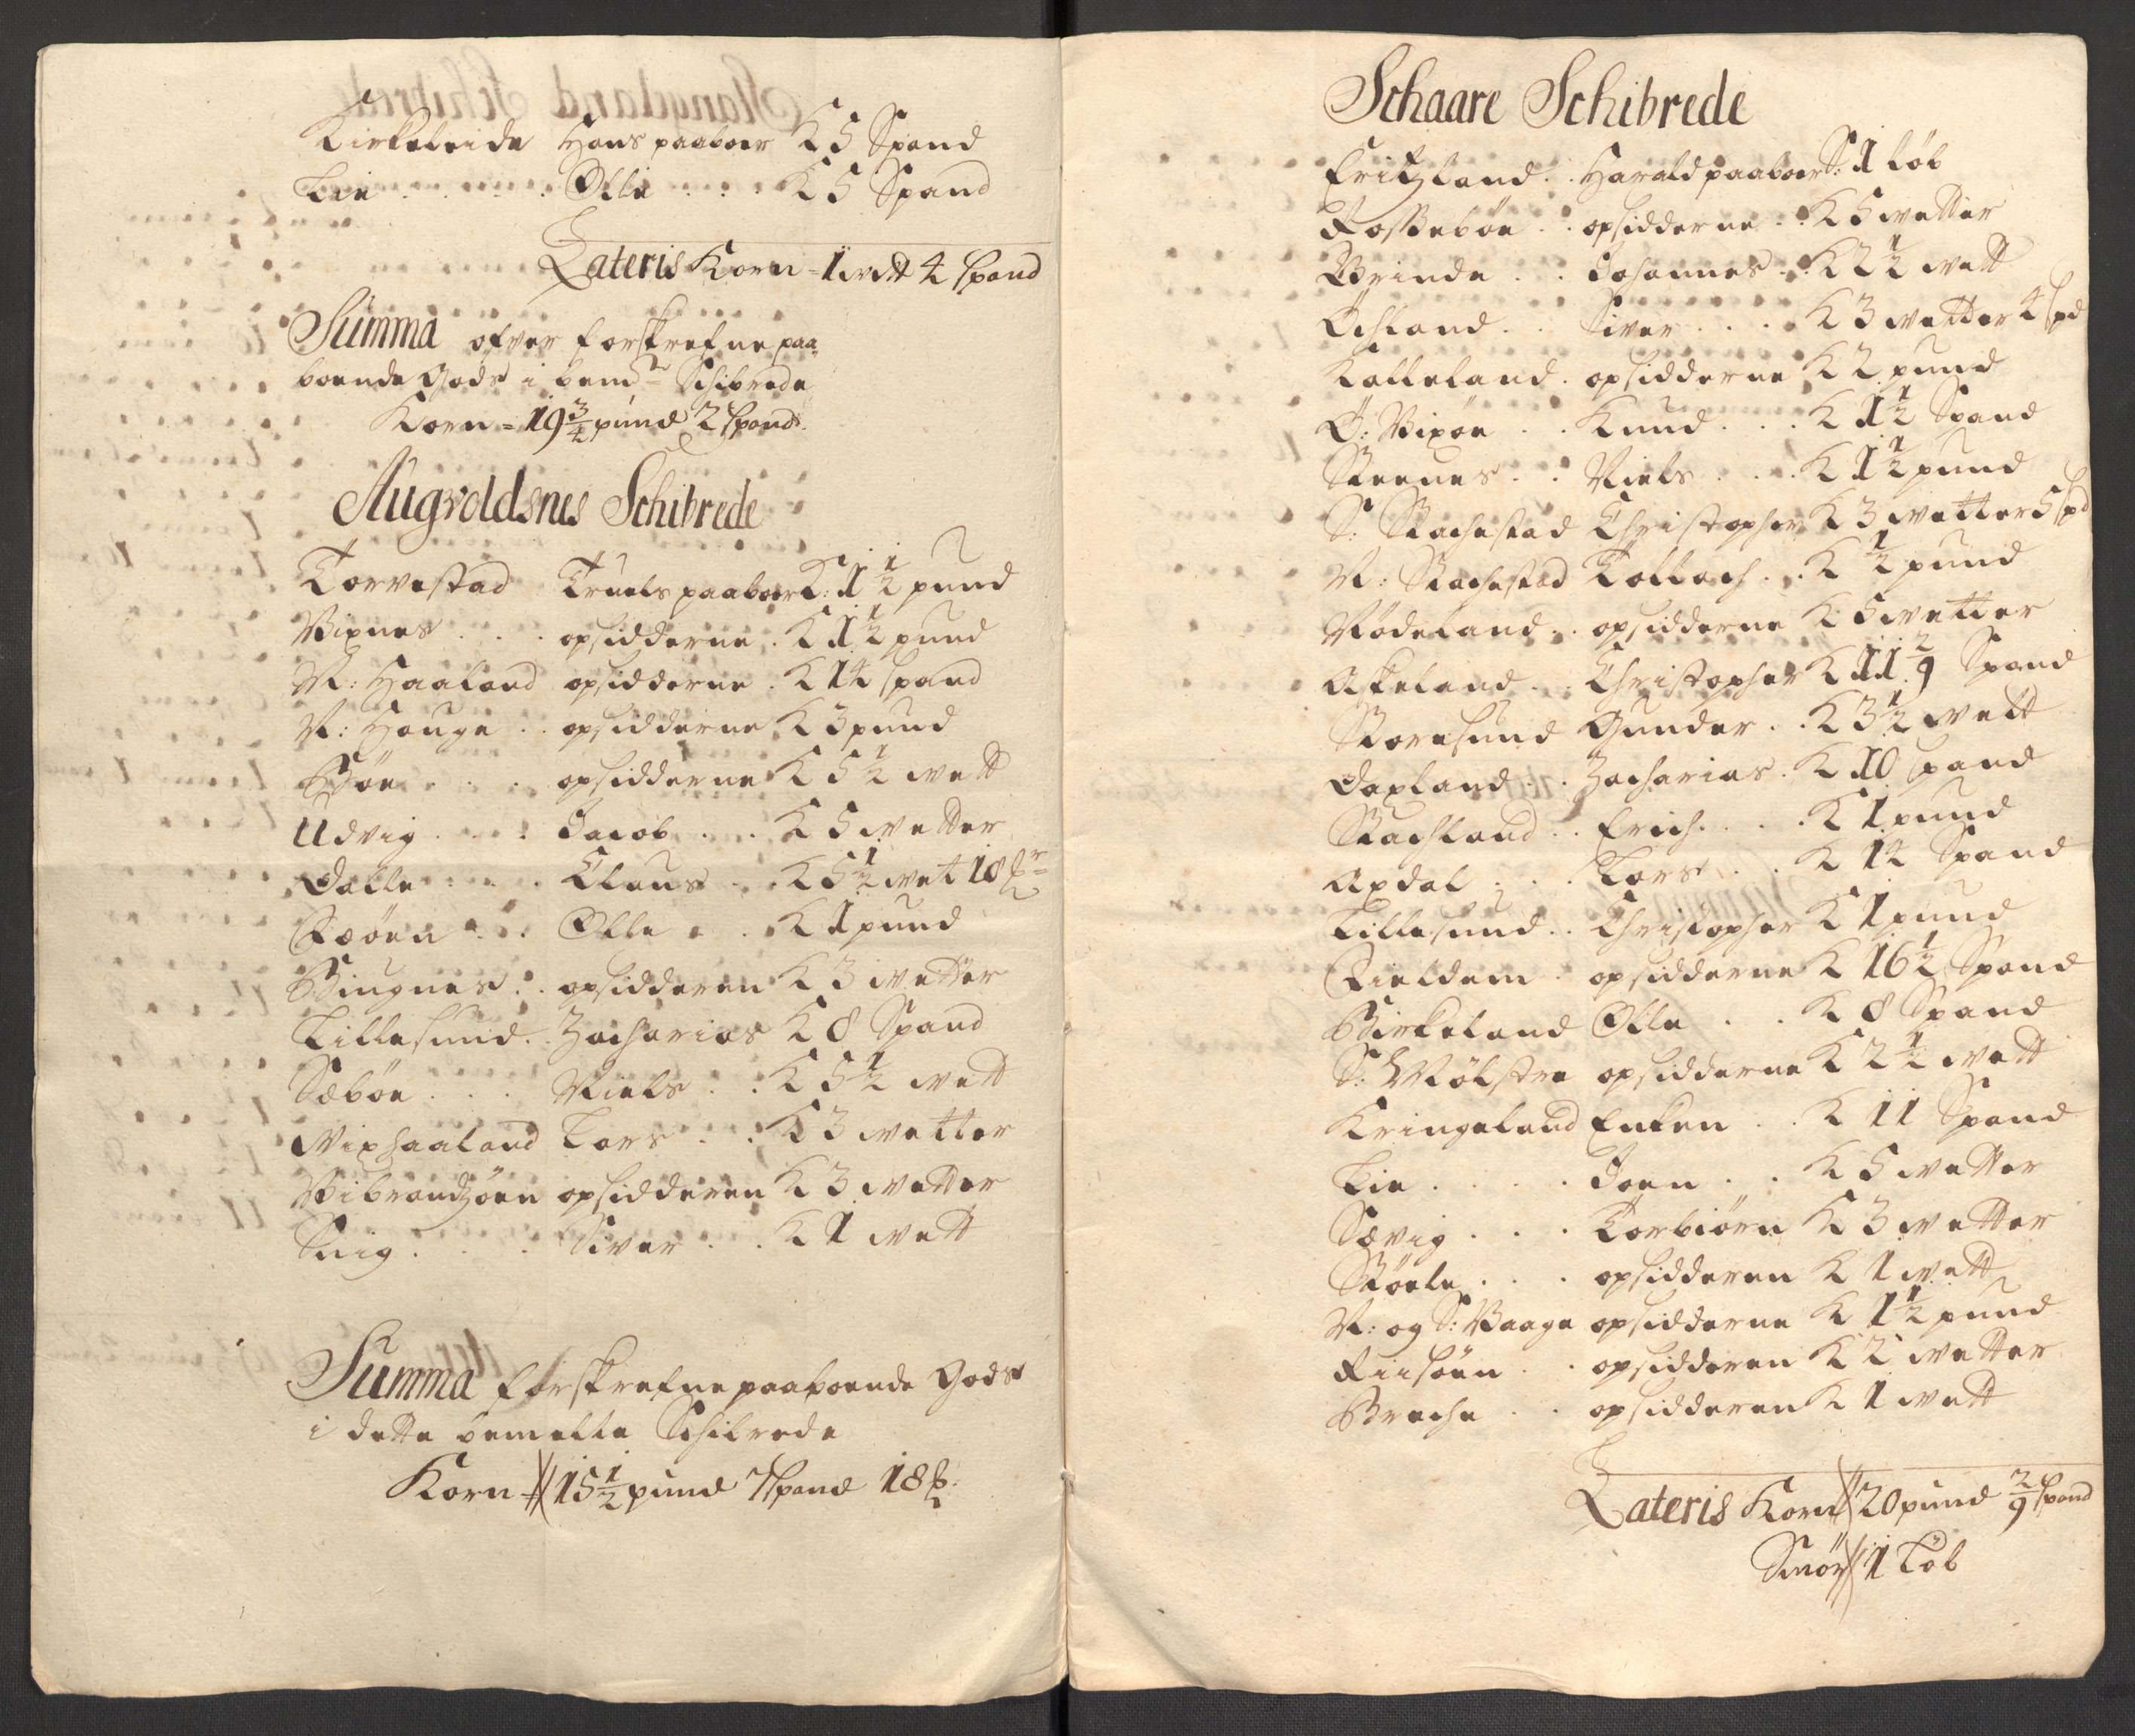 Kirkeleide Hans paaboer K 5 Spand
Lie . . . . Olle . . . K 5 Spand
Lateris Korn = 1 wett 4 spand
Summa ofver forskrefne paa
boende Gods i bemte Schibrede
Korn = 19 3/4 pund 2 spand
Augvoldsnes Schibrede
Torvestad Truels paaboer K: 1 1/2 pund
Vixnes . . . opsidderne . K 1 1/2 pund
N: Haaland opsidderne . K 14 spand
N: Houge . . opsidderne K 3 pund
Bøe . . . opsidderne K 5 1/2 wett
Udvig . . . Jacob . . K 5 wetter
Dalle . . . Claus . . K 5 1/2 wet 18
Fæøen . . . Olle . . K 1 pund
Bingnes . . opsidderen K 3 wetter
Lillesund . . Zacharias K 8 Spand
Sæbøe . . . Niels . . K 5 1/2 wett
Vixhaaland Lars . . K 3 wetter
Vibrandzøen opsidderen K 3 wetter
Snig . . . Siver . . K 1 wett
Summa forskrefne paaboende Gods
i dette bemelte Schibrede
Korn = 15 1/2 pund 7 spand 18
Schaare Schibrede
Eritzland . . Harald paaboer S: 1 løb
Fossebøe . . opsidderne . K 5 wetter
Brinde . . Johannes . K 2 1/2 wett
Øchland . . Siver . . . K 3 wetter 4 spd
Kalleland . opsidderne K 2 pund
Ø: Vixøe . . Knud . . . K 1 1/2 Spand
Steenes . . Niels . . . K 1 1/2 pund
S: Stachestad Christopher K 3 wetter 5 spd
N: Stachestad Tollach . . K 1/2 pund
Nødeland . . opsidderne K 5 wetter
Askeland . . Christopher K 11 2/9 Spand
Storesund Gunder . . K 3 1/2 wett
Daxland . . Zacharias . K 10 spand
Stachland . . Erich . . . K 1 pund
Axdal . . . Lars . . K 14 Spand
Lillesund . . Christopher K 1 pund
Fieldem . opsidderne K 16 1/2 Spand
Birkeland Olle . . K 8 Spand
S: Mølstre opsidderne K 2 1/2 wett
Kringeland Enken . . K 11 Spand
Lie . . . . Joen . . K 5 wetter
Sævig . . . Torbiørn K 3 wetter
Støele . . . opsidderen K 1 wett
N: og S: Vaage opsidderne K 1 1/2 pund
Fiisøen . . opsidderen K 2 wetter
Breche . . opsidderen K 1 wett
Lateris Korn 20 pund 2/9 spand
Smør 1 Løb